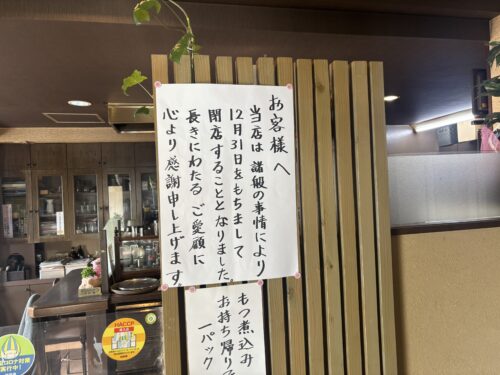 お客様へ
当店は諸般の事情により
12月31日をもちまして
閉店することとなりました
長きにわたるご愛顧に
心より感謝申し上げます。
もつ煮込み
お持ち帰り
一パック
HACCP
コロナ対策
実行中!